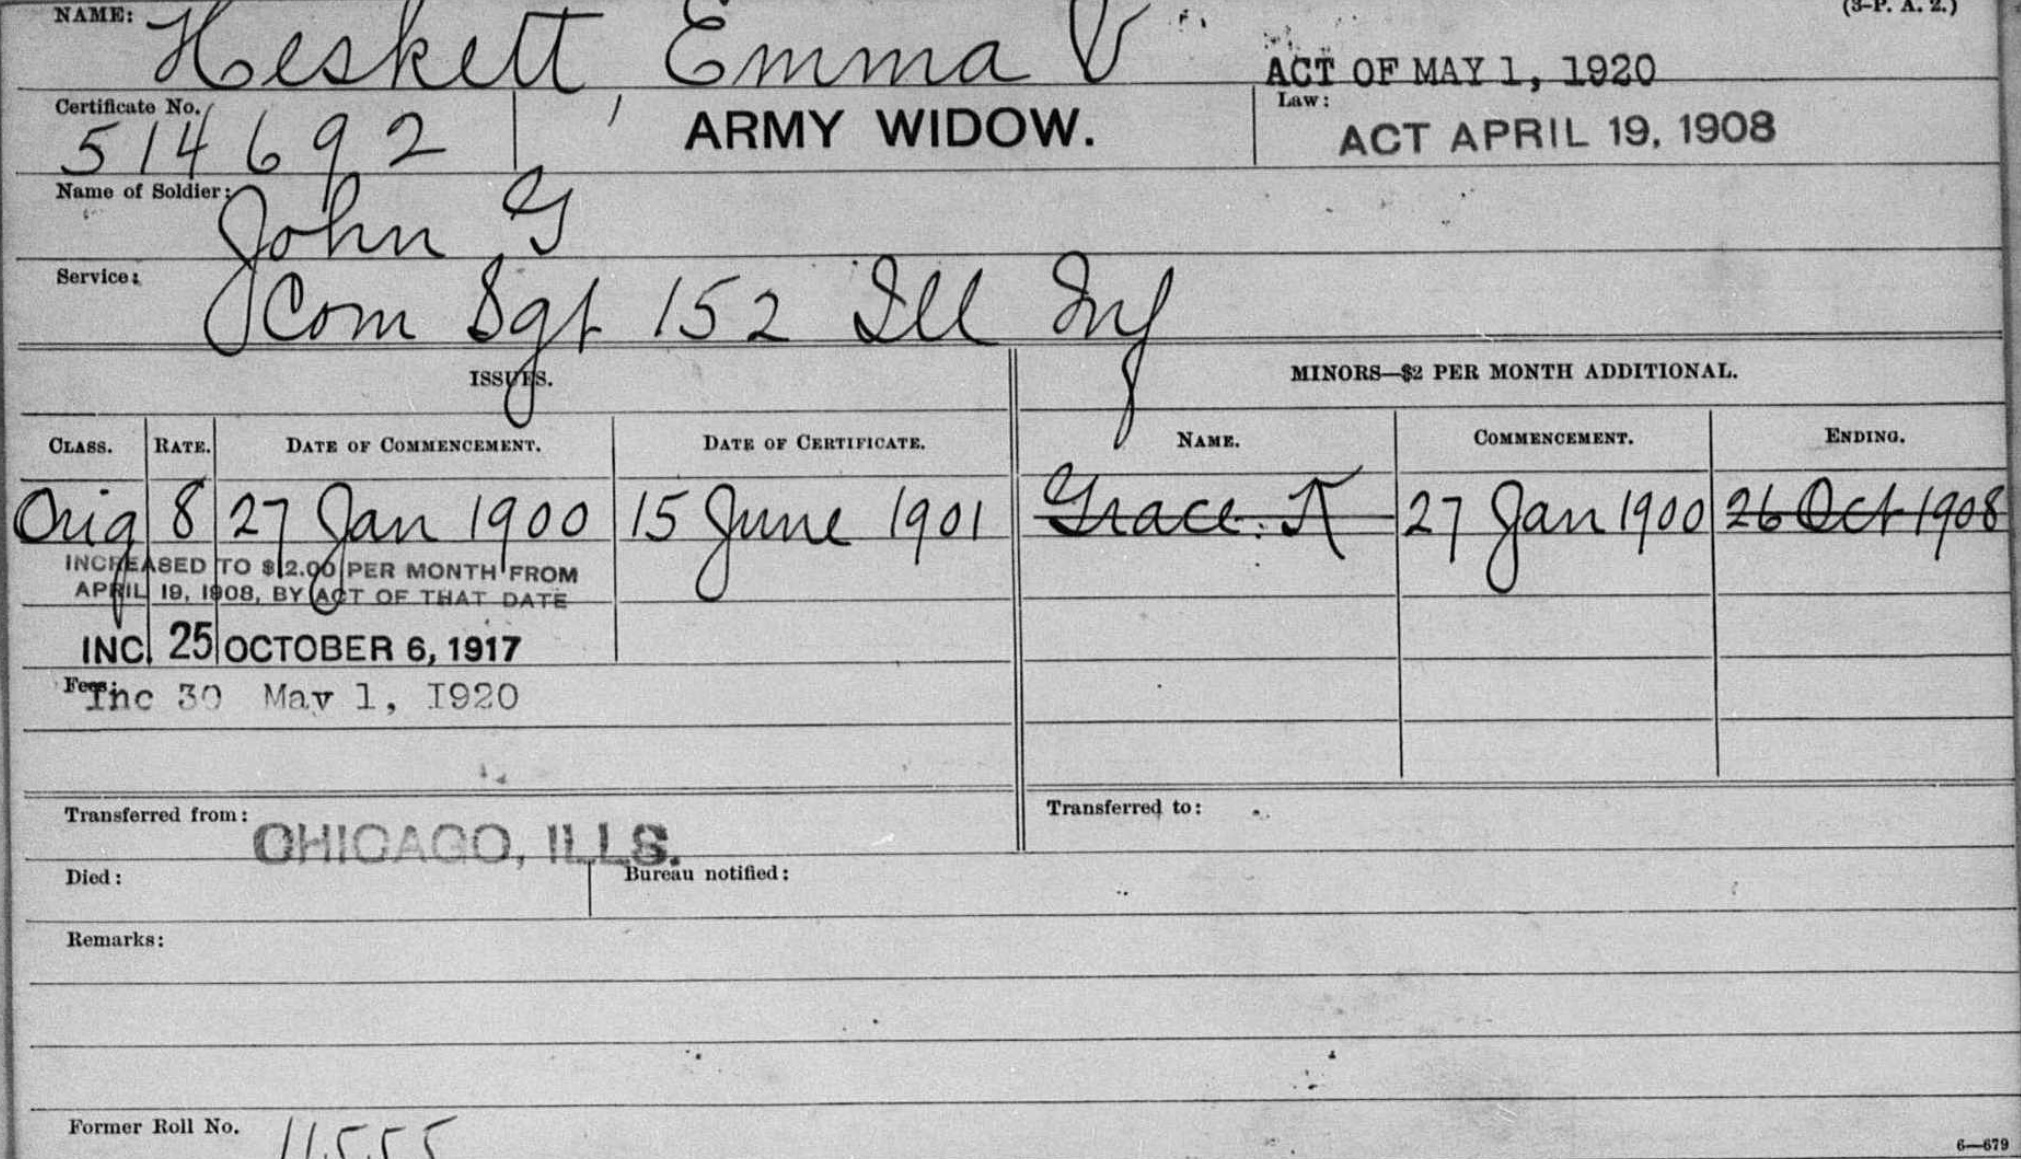 (3-P. A. 2.)
NAME: Heskett, Emma V
ACT OF MAY 1, 1920
Certificate No. 514692
ARMY WIDOW.
Law: ACT APRIL 19, 1908
Name of Soldier: John G
Service: Com Sgt 152 Ill Inf
ISSUES.
MINORS—$2 PER MONTH ADDITIONAL.
CLASS. RATE. DATE OF COMMENCEMENT. DATE OF CERTIFICATE. NAME. COMMENCEMENT. ENDING.
Orig 8 27 Jan 1900 15 June 1901 Grace K 27 Jan 1900 26 Oct 1908
INCREASED TO $12.00 PER MONTH FROM
APRIL 19, 1908, BY ACT OF THAT DATE
INC. 25 OCTOBER 6, 1917
Fees:
Inc 30 May 1, I920
Transferred from: CHICAGO, ILLS.
Transferred to:
Died:
Bureau notified:
Remarks:
Former Roll No. 11555
6—679